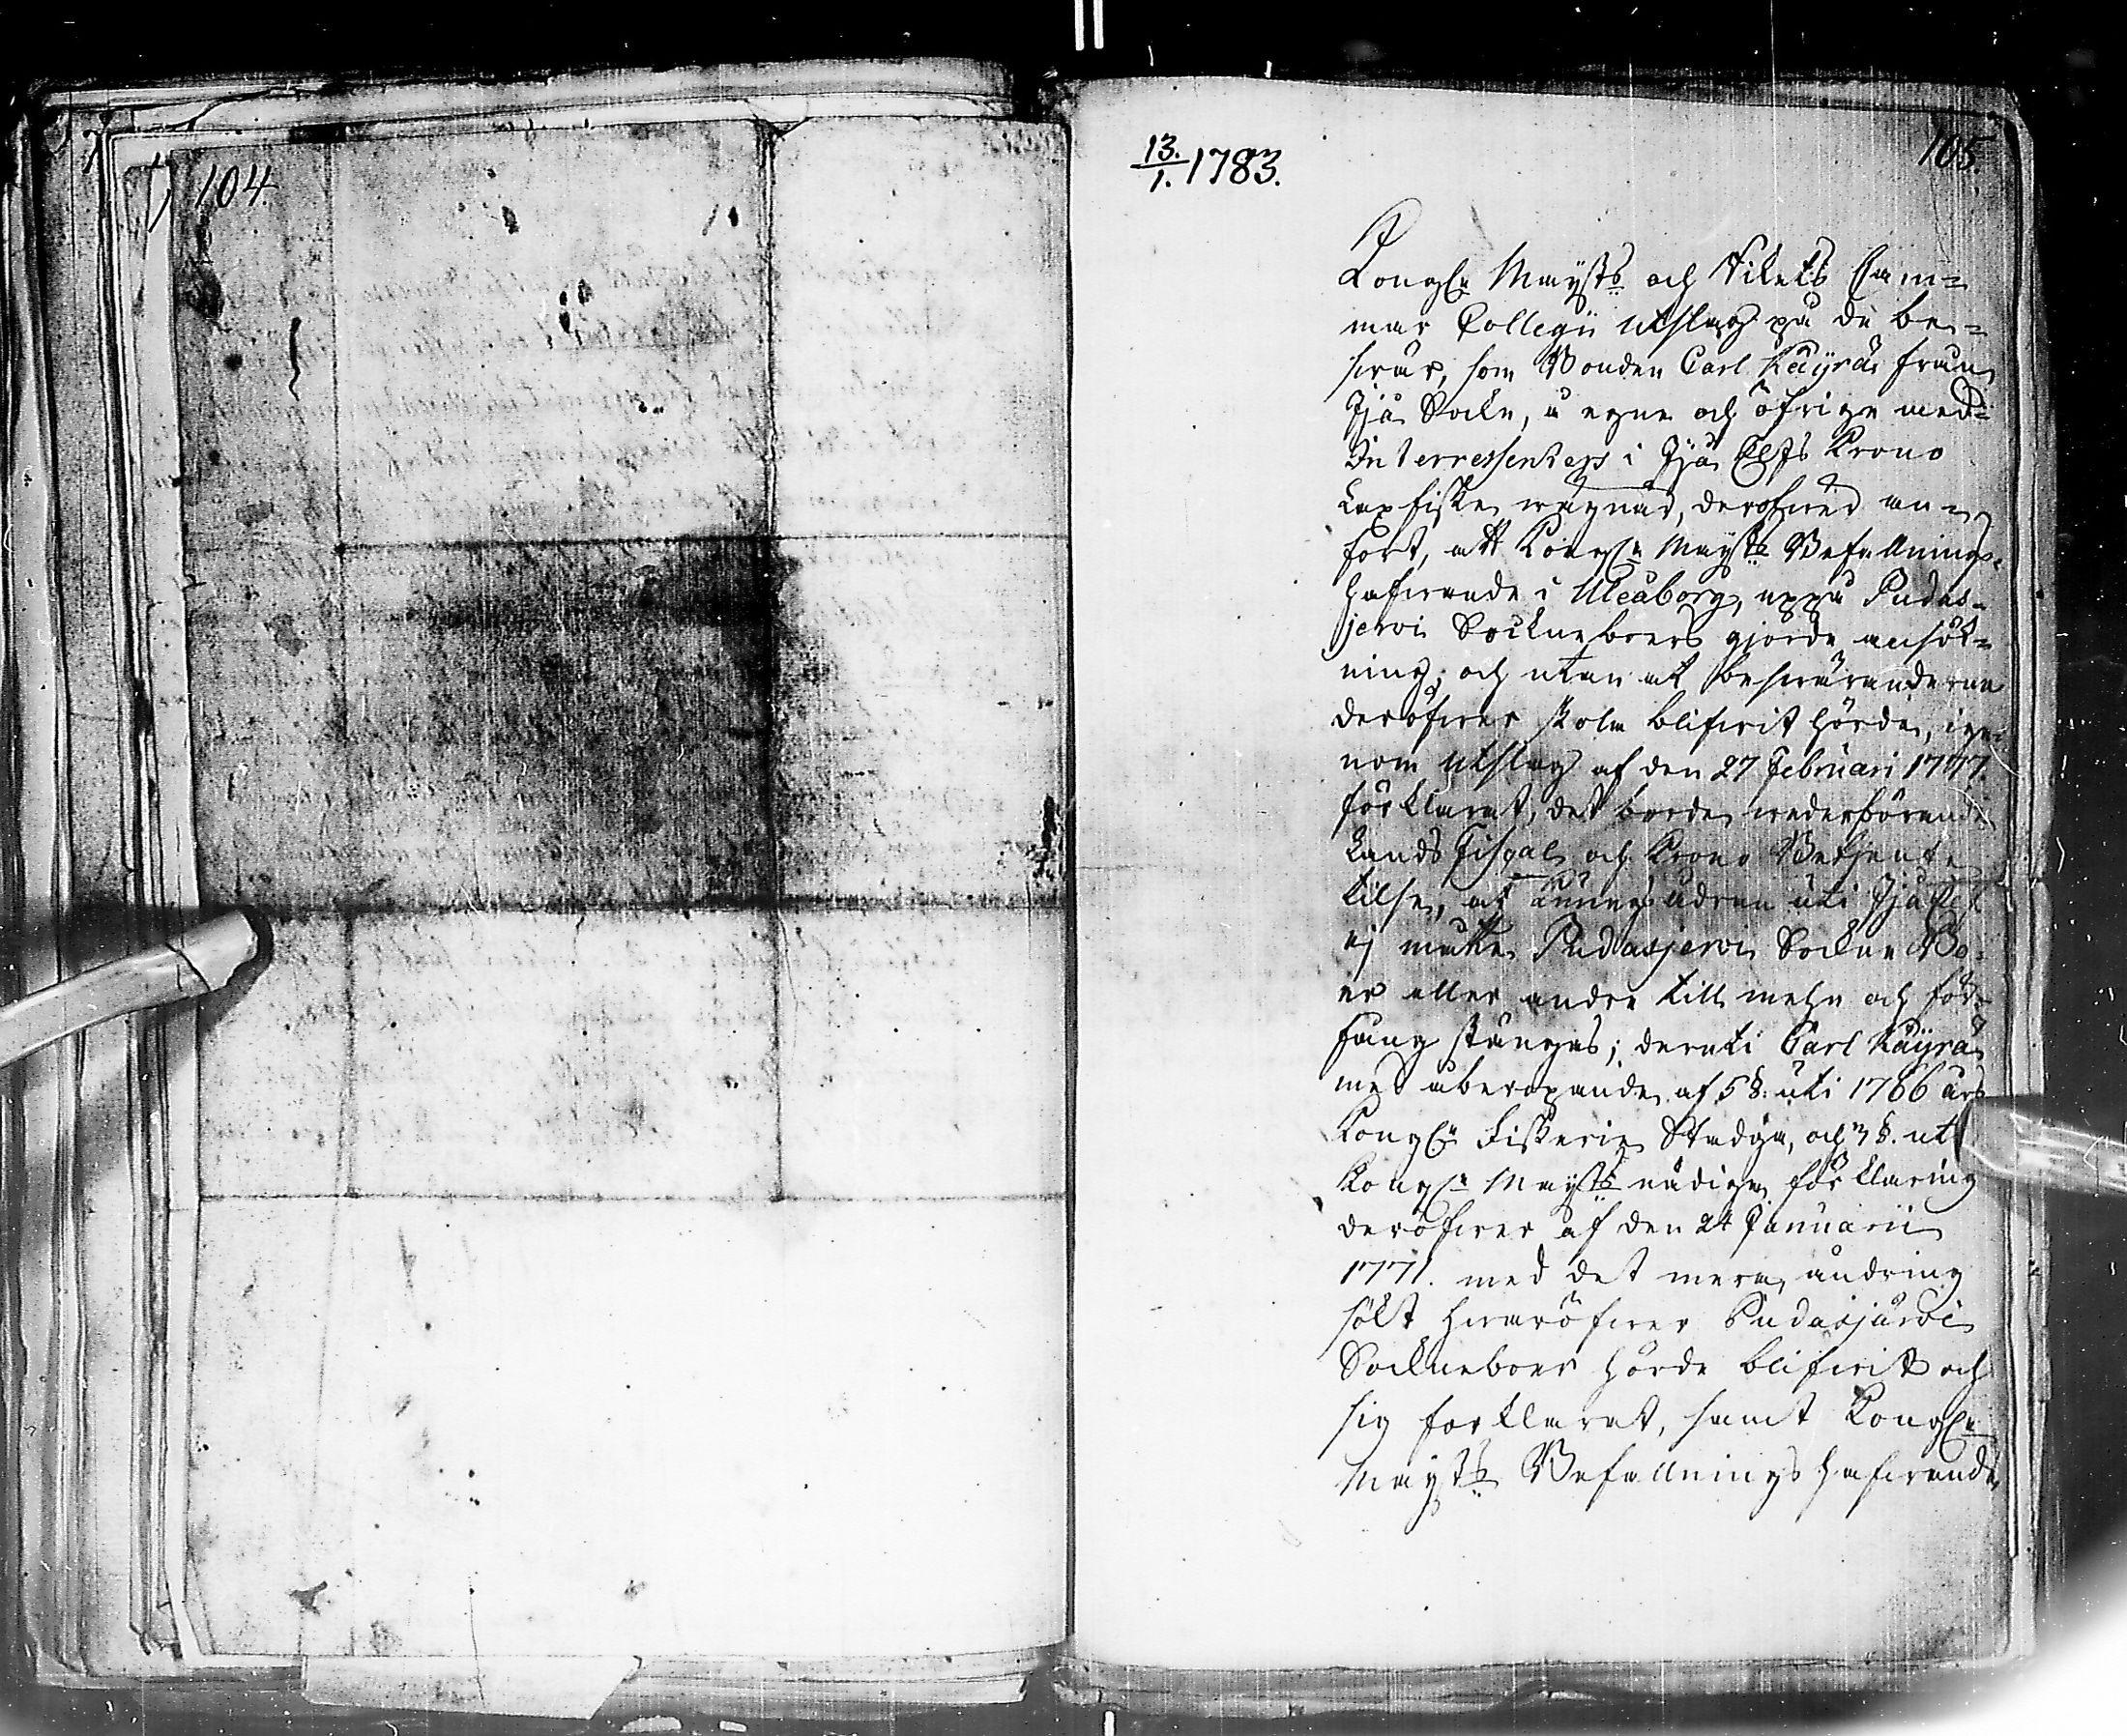 104.
13./1. 1783.
105.
Kongl. Maÿsts och Rikets Cam=
mar Collegii Utslag på de be=
swär, som Bonden Carl Käÿrä från
Jjå Sockn, å egne och öfrige med=
Interressenters i Jjå Elfs Krono
Laxfiske wägnar, deröfwer an=
fört, att Kongl. Maÿts Befallnings=
hafwande i Uleåborg, uppå Pudas=
jerwi Sockneboers gjorde ansök=
ning, och utan at beswäranderne
deröfwer skola blifwit hörde, ige=
nom Utslag af den 27 Februari 1777.
förklarat, det borde wederbörande
Lands Fiscal och Krono Betjente
tilse, at Kungsådren uti Jjå Elf
ej måtte Pudasjerwi Sockne Bo=
er eller andre till mehn och för=
fång stänges; deruti Carl Käÿrä
med åberopande af 5 §. uti 1766 års
Kongl. Fiskerie Stadga, och 3 §. uti
Kongl. Maÿts nådige förklaring
deröfwer af den 24 Januarii
1771. med det mera, ändring
sökt hwaröfwer Pudasjärwi
Sockneboer hörde blifwit och
sig förklarat, samt Kongl.
Maÿts Befallningshafwande